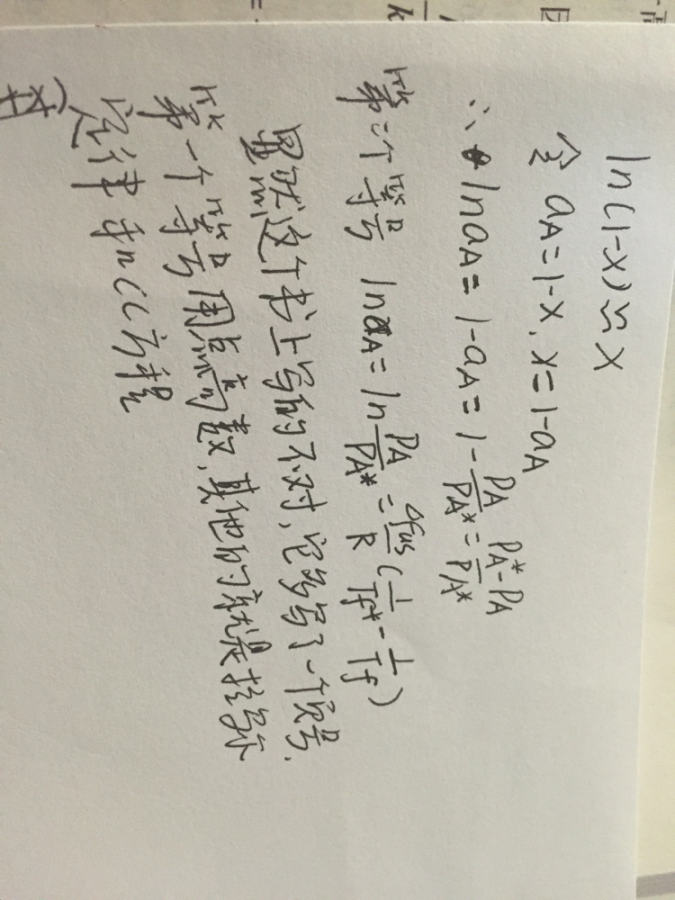 ln(1-x)≈x
令 aA=1-x, x=1-aA
∴ lnaA=1-aA=1-PA/PA*=PA*-PA/PA*
第二个等号 lnaA=ln PA/PA*=ΔfusR(1/Tf*-1/Tf)
显然这个书上写的不对,它多写了一个负号.
第一个等号用点高数,其他的就是拉乌尔
定律和CC方程